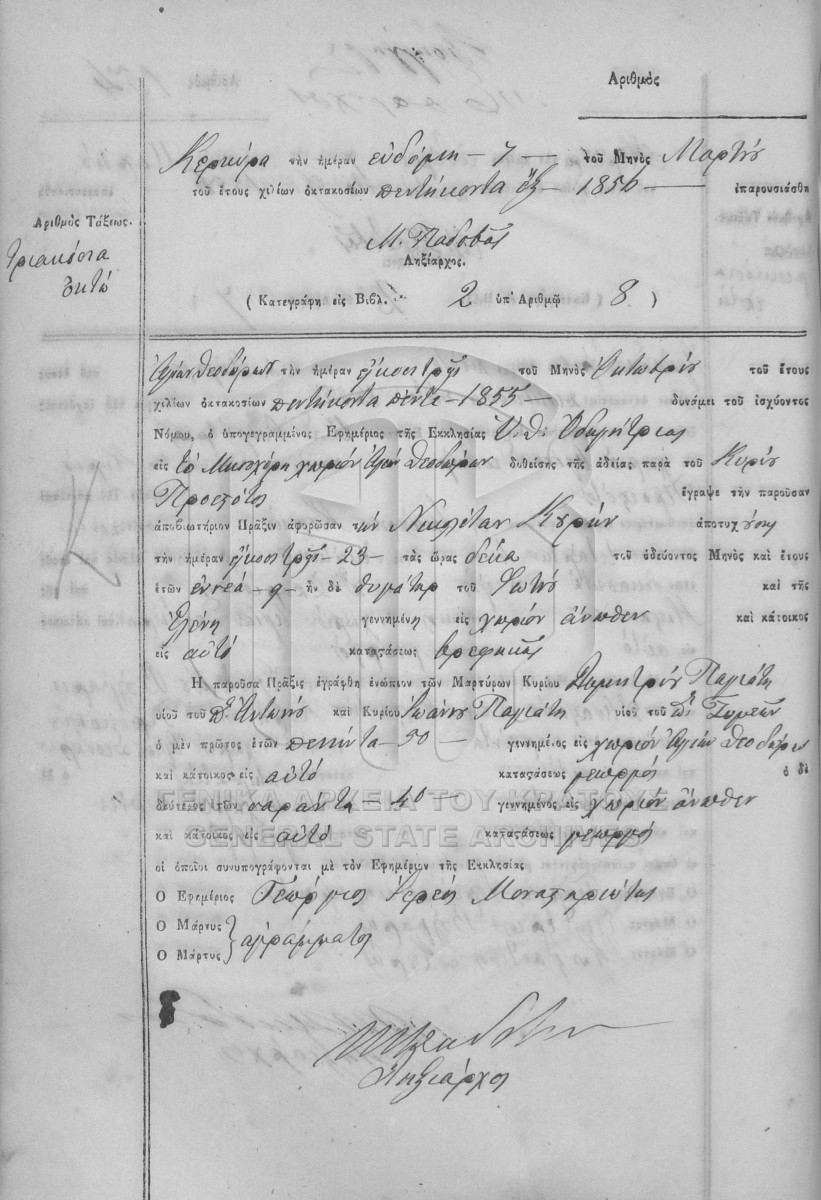 Ἀριθμὸς
Κερκύρα τὴν ἡμέραν εὐδόμη - 7 - τοῦ Μηνὸς Μαρτίου
τοῦ ἔτους χιλίων ὀκτακοσίων πεντήκοντα ἕξ - 1856 - ἐπαρουσιάσθη
Ἀριθμὸς Τάξεως.
τριακόσια
ὀκτώ
Μ. Παδοβᾶς
Ληξίαρχος.
( Κατεγράφη εἰς Βιβλ. 2 ὑπ' Ἀριθμῷ 8 )
Ἁγίων Θεοδώρων τὴν ἡμέραν εἴκοσι τρῆς τοῦ Μηνὸς Ὀκτωβρίου τοῦ ἔτους
χιλίων ὀκτακοσίων πεντήκοντα πέντε - 1855 - δυνάμει τοῦ ἰσχύοντος
Νόμου, ὁ ὑπογεγραμμένος Ἐφημέριος τῆς Ἐκκλησίας Ὑ. Θ. Ὁδηγήτριας
εἰς τὸ χωρίον Ἁγίων Θεοδώρων δοθείσης τῆς ἀδείας παρὰ τοῦ Κυρίου
Προεστότος ἔγραψε τὴν παροῦσαν
ἀποβιωτήριον Πρᾶξιν ἀφορῶσαν τὴν Νικολέταν ἀποτυχούσης
τὴν ἡμέραν εἴκοσι τρῆς - 23 - τὰς ὥρας δέκα τοῦ ὁδεύοντος Μηνὸς καὶ ἔτους
ἐτῶν ἐννέα - 9 - ἦν δὲ θυγάτηρ τοῦ Φωτίου καὶ τῆς
Ἑλένη γεννημένη εἰς χωρίον ἄνωθεν καὶ κάτοικος
εἰς αὐτό καταστάσεως βρεφικῆς
Ἡ παροῦσα Πρᾶξις ἐγράφθη ἐνώπιον τῶν Μαρτύρων Κυρίου Δημητρίου Παγιάτη
υἱοῦ τοῦ Ἀντωνίου καὶ Κυρίου Ἰωάννου Παγιάτη υἱοῦ τοῦ Συμεών
ὁ μὲν πρῶτος ἐτῶν πενήντα - 50 - γεννημένος εἰς χωρίον Ἁγίων Θεοδώρων
καὶ κάτοικος εἰς αὐτό καταστάσεως γεωργός ὁ δὲ
δεύτερος ἐτῶν σαράντα - 40 - γεννημένος εἰς χωρίον ἄνωθεν
καὶ κάτοικος εἰς αὐτό καταστάσεως γεωργός
οἱ ὁποῖοι συνυπογράφονται μὲ τὸν Ἐφημέριον τῆς Ἐκκλησίας
Ὁ Ἐφημέριος Γεώργιος Ἱερεύς Μοναστηριώτης
Ὁ Μάρτυς
Ὁ Μάρτυς } ἀγράμματοι
Ληξίαρχος
ΓΕΝΙΚΑ ΑΡΧΕΙΑ ΤΟΥ ΚΡΑΤΟΥΣ
GENERAL STATE ARCHIVES